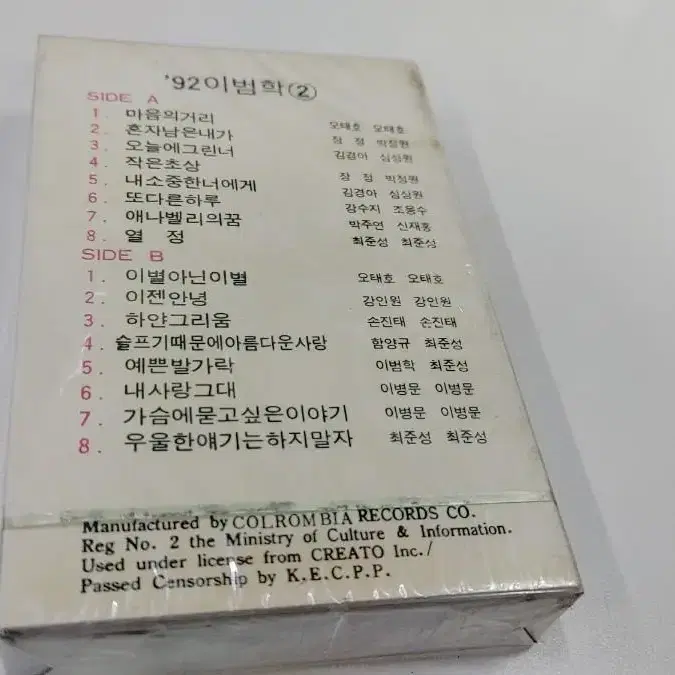 '92이범학②
SIDE A
1. 마음의거리 오태호 오태호
2. 혼자남은내가 장 정 박정원
3. 오늘에그린너 김경아 심상원
4. 작은초상 장 정 박정원
5. 내소중한너에게 김경아 심상원
6. 또다른하루 강수지 조응수
7. 애나벨리의꿈 박주연 신재홍
8. 열 정 최준성 최준성
SIDE B
1. 이별아닌이별 오태호 오태호
2. 이젠안녕 강인원 강인원
3. 하얀그리움 손진태 손진태
4. 슬프기때문에아름다운사랑 함양규 최준성
5. 예쁜발가락 이범학 최준성
6. 내사랑그대 이병문 이병문
7. 가슴에묻고싶은이야기 이병문 이병문
8. 우울한얘기는하지말자 최준성 최준성
Manufactured by COLROMBIA RECORDS CO.
Reg No. 2 the Ministry of Culture & Information.
Used under license from CREATO Inc./
Passed Censorship by K.E.C.P.P.